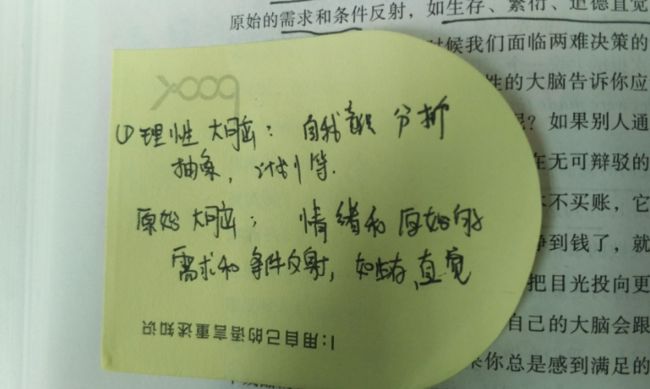 原始的需求和条件反射,如生存、繁衍、道德直觉
时候我们面临两难决策的
性的大脑告诉你应
呢?如果别人通
在无可辩驳的
不买账,它
挣到钱了,就
把目光投向更
自己的大脑会跟
你总是感到满足的
boox
①理性大脑:自我意识 分析
抽象,计划等.
原始大脑:情绪和原始的
需求和条件反射,如生存,直觉
1:用自己的语言重述知识